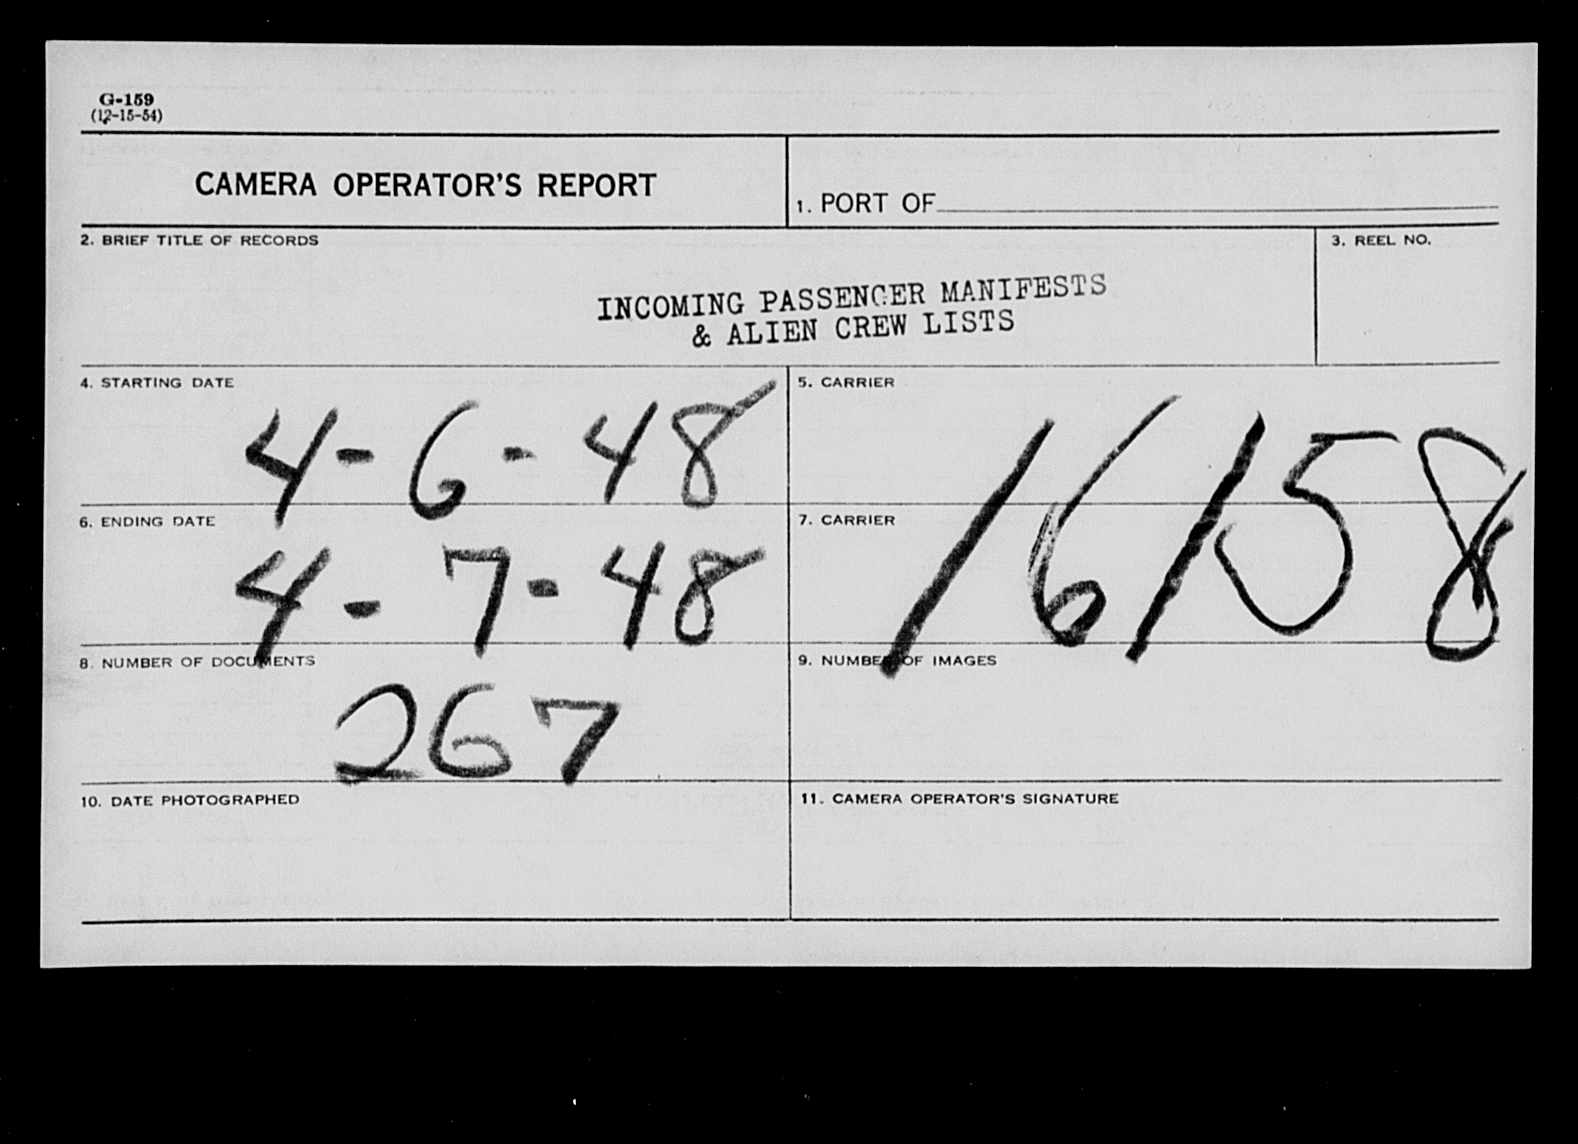 G-159
(12-15-54)
CAMERA OPERATOR'S REPORT
1. PORT OF
2. BRIEF TITLE OF RECORDS
3. REEL NO.
INCOMING PASSENGER MANIFESTS
& ALIEN CREW LISTS
4. STARTING DATE
4-6-48
5. CARRIER
16158
6. ENDING DATE
4-7-48
7. CARRIER
8. NUMBER OF DOCUMENTS
267
9. NUMBER OF IMAGES
10. DATE PHOTOGRAPHED
11. CAMERA OPERATOR'S SIGNATURE